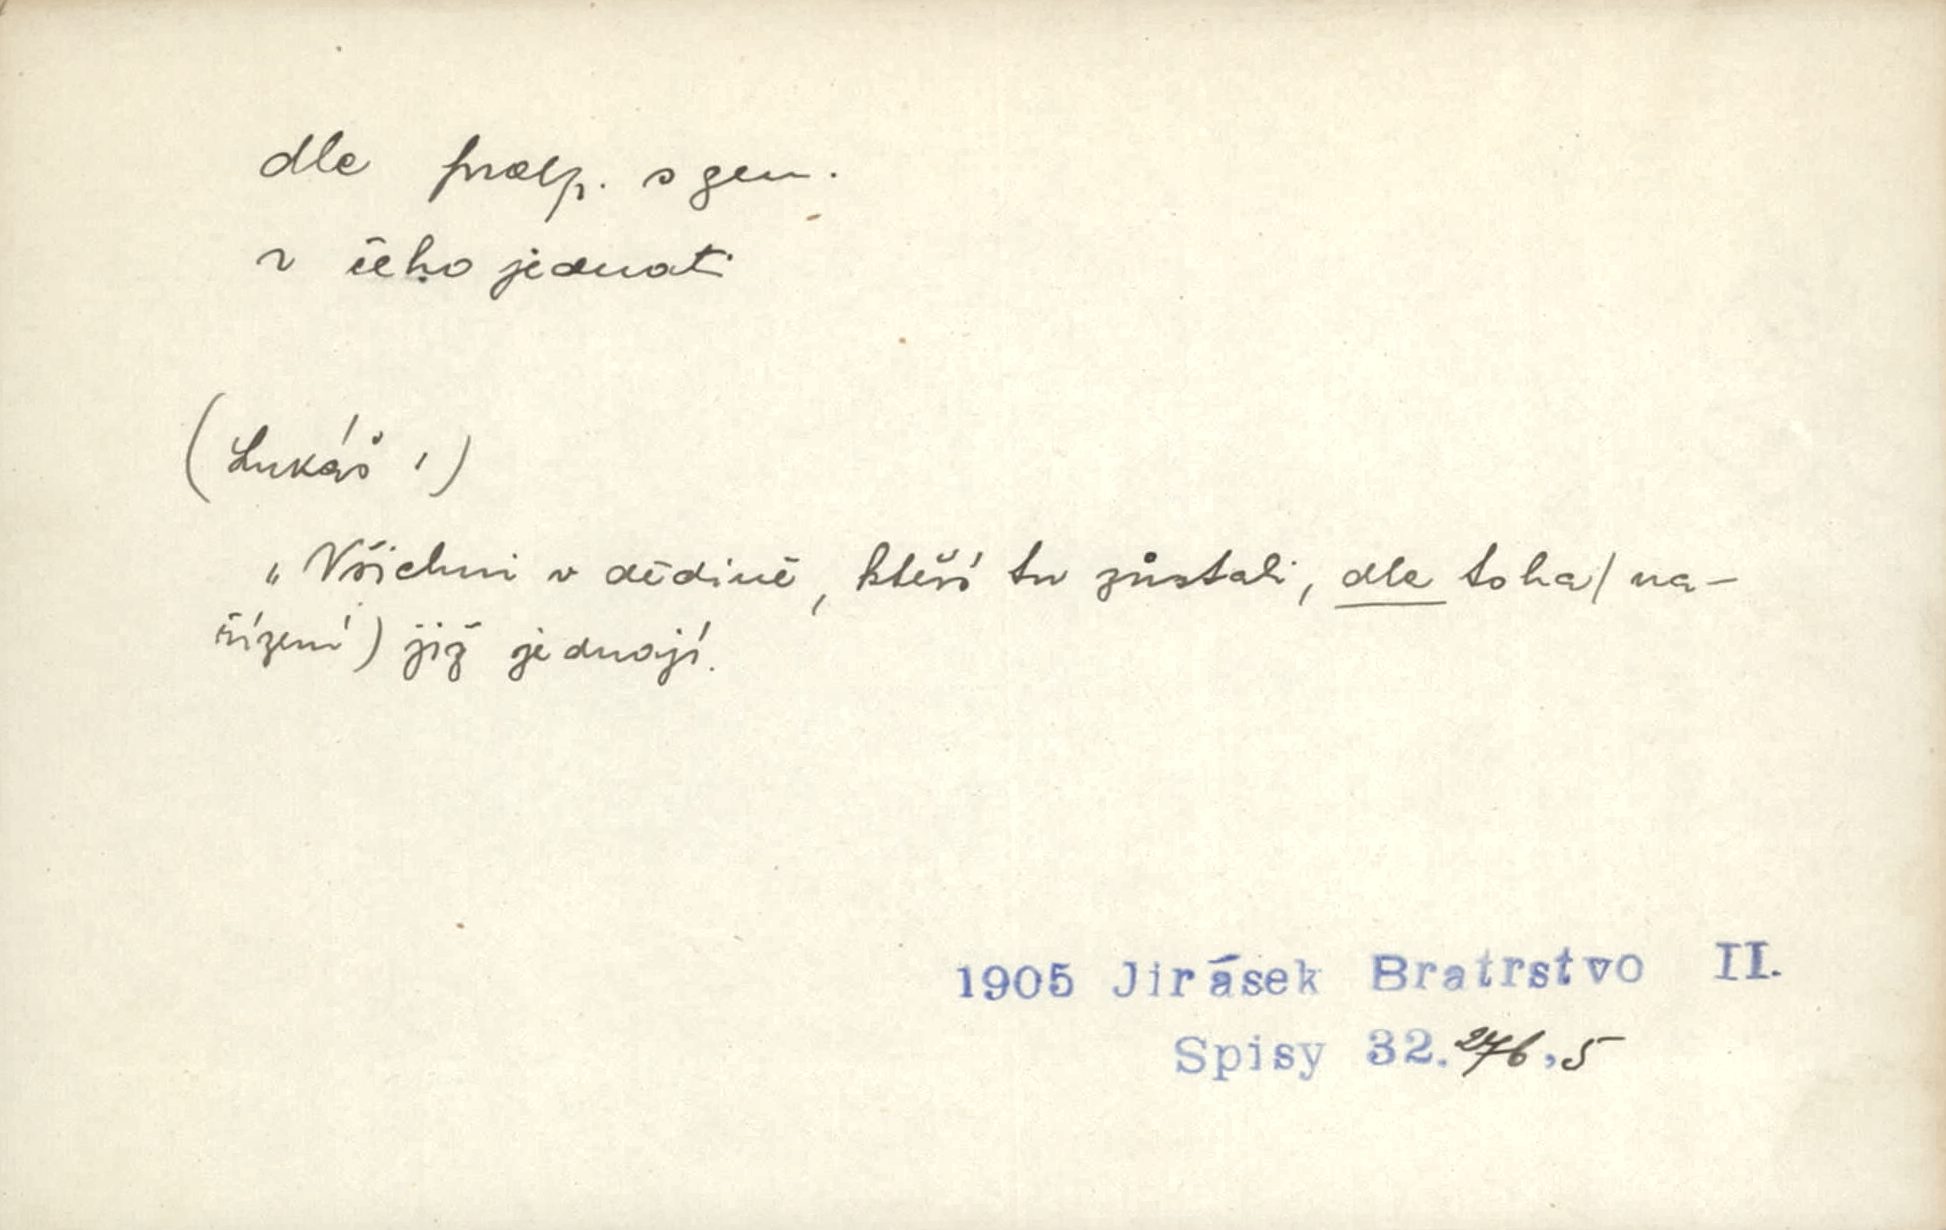 dle praep. s gen.
~ čeho jednati
(Lukáš:)
„Všichni v dědině, kteří tu zůstali, dle toho (na-
řízení) již jednají.
1905 Jirásek Bratrstvo II.
Spisy 32. 276,5